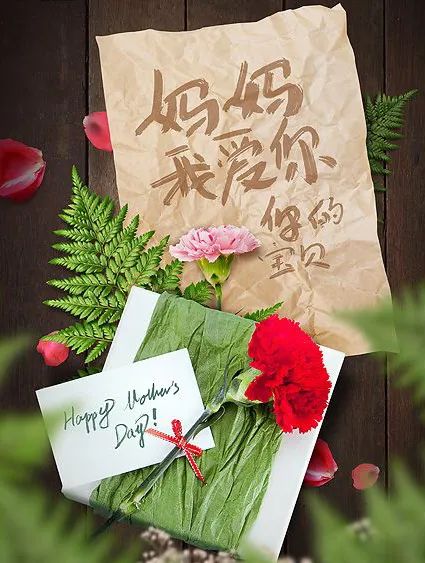 妈妈
我爱你
你的
宝贝
Happy Mother's
Day!